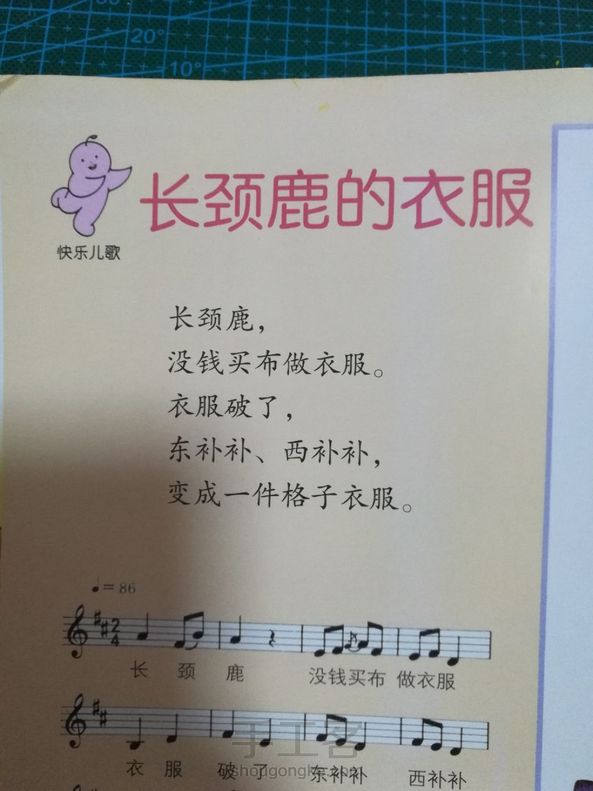 30°
20°
10°
长颈鹿的衣服
快乐儿歌
长颈鹿，
没钱买布做衣服。
衣服破了，
东补补、西补补，
变成一件格子衣服。
♩= 86
2
4
长 颈 鹿 没钱买布 做衣服
手工客
shougongke.com
衣 服 破 了 东补补 西补补